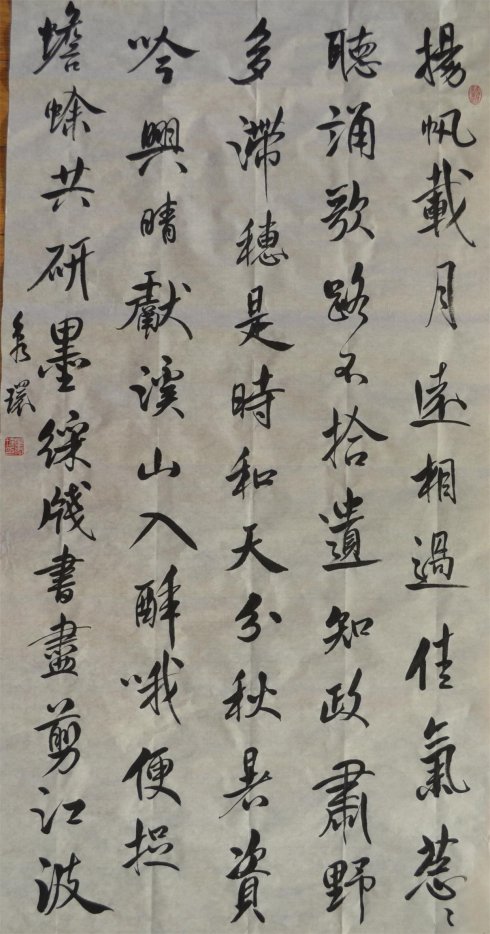 揚帆載月遠相過佳氣葱〻
聽誦歌路不拾遺知政肅野
多滯穗是時和天分秋暑資
吟興晴獻溪山入酔哦便捉
蟾蜍共研墨綵牋書盡剪江波
環